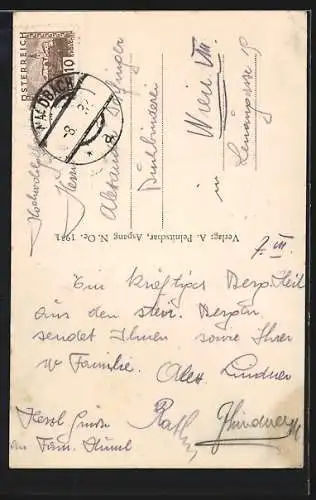 ÖSTERREICH
10
WALDBACH
8.
a
Hochwohlgeb.
Herrn
Alexander
Buchbinderei
Wien VIII.
in Lenaugasse 19
Verlag: A. Pelnitschar, Aspang N. Oe. 1931.
7. VIII.
Ein kräftiges Berg Heil
aus den steir. Bergen
sendet Ihnen sowie Ihrer
w Familie. Alex. Lindner
Herzl Grüße
an Fam.